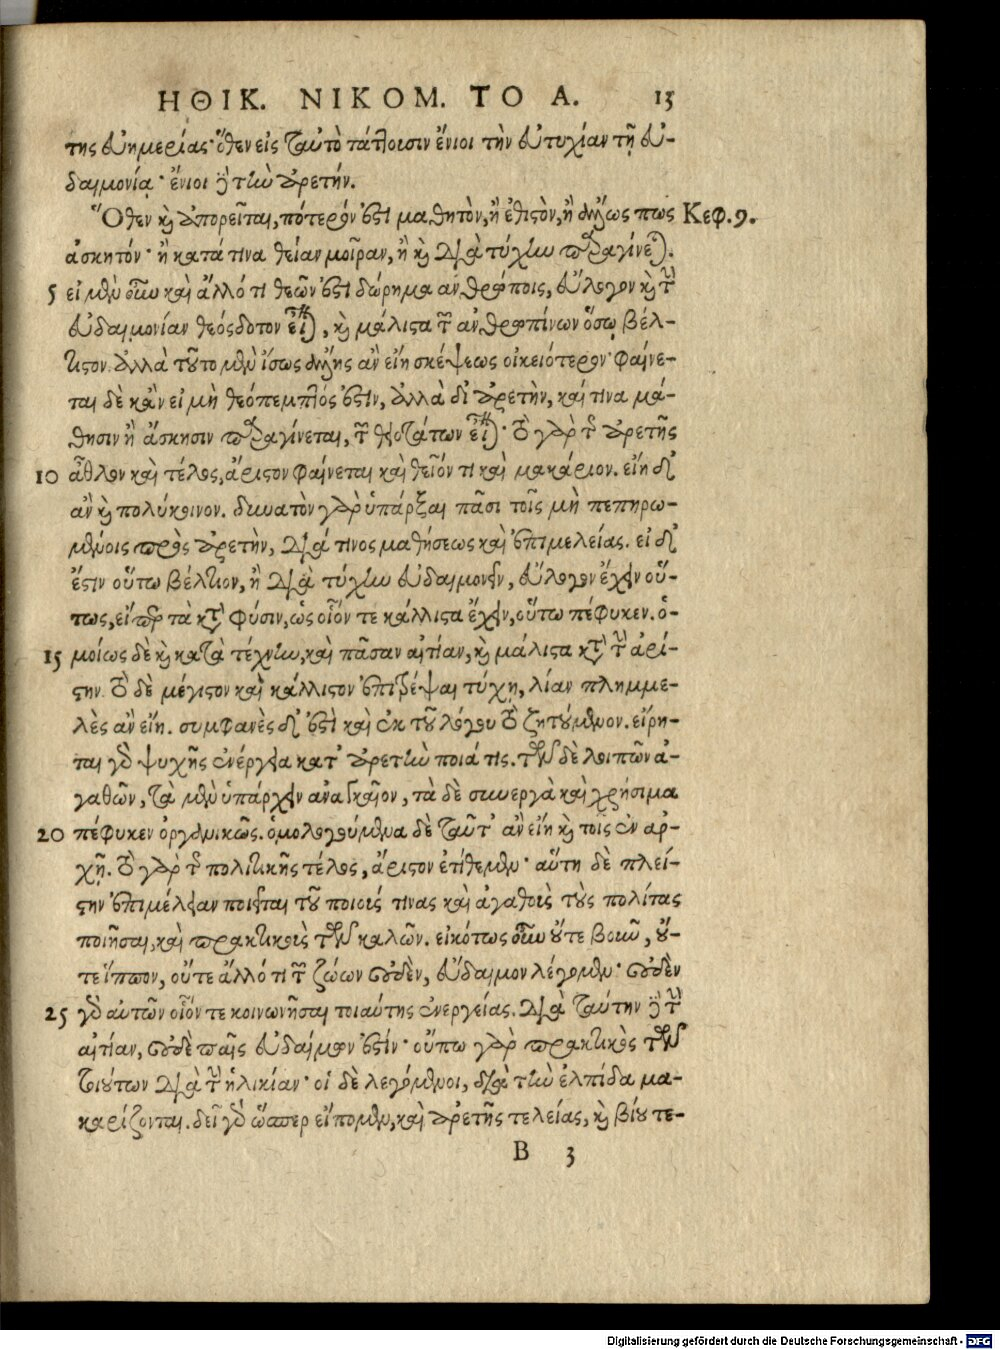 ΗΘΙΚ. ΝΙΚΟΜ. ΤΟ Α. 13
της εὐημερίας· ὅθεν εἰς ταυτὸ τάττουσιν ἔνιοι τὴν εὐτυχίαν τῇ εὐ-
δαιμονίᾳ· ἔνιοι δὲ τὴν ἀρετήν.
Ὅθεν καὶ ἀπορεῖται, πότερόν ἐστι μαθητὸν, ἢ ἐθιστὸν, ἢ ἄλλως πως Κεφ. 9.
ἀσκητόν· ἢ κατά τινα θείαν μοῖραν, ἢ καὶ διὰ τύχην παραγίνεται.
5 εἰ μὲν οὖν καὶ ἄλλό τι θεῶν ἐστὶ δώρημα ἀνθρώποις, εὔλογον καὶ τὴν
εὐδαιμονίαν θεόσδοτον εἶναι, καὶ μάλιστα τῶν ἀνθρωπίνων ὅσῳ βέλ-
τιστον. ἀλλὰ τοῦτο μὲν ἴσως ἄλλης ἂν εἴη σκέψεως οἰκειότερον· φαίνε-
ται δὲ κἂν εἰ μὴ θεόπεμπτός ἐστιν, ἀλλὰ δι' ἀρετὴν, καί τινα μά-
θησιν ἢ ἄσκησιν παραγίνεται, τῶν θειοτάτων εἶναι· τὸ γὰρ τῆς ἀρετῆς
10 ἆθλον καὶ τέλος, ἄριστον φαίνεται καὶ θεῖόν τι καὶ μακάριον. εἴη δ'
ἂν καὶ πολύκοινον. δυνατὸν γὰρ ὑπάρξαι πᾶσι τοῖς μὴ πεπηρω-
μένοις πρὸς ἀρετὴν, διά τινος μαθήσεως καὶ ἐπιμελείας. εἰ δ'
ἔστιν οὕτω βέλτιον, ἢ διὰ τύχην εὐδαιμονεῖν, εὔλογον ἔχειν οὕ-
τως, εἴπερ τὰ κατὰ φύσιν, ὡς οἷόν τε κάλλιστα ἔχειν, οὕτω πέφυκεν. ὁ-
15 μοίως δὲ καὶ κατὰ τέχνην, καὶ πᾶσαν αἰτίαν, καὶ μάλιστα κατὰ τὴν ἀρί-
στην. τὸ δὲ μέγιστον καὶ κάλλιστον ἐπιτρέψαι τύχῃ, λίαν πλημμε-
λὲς ἂν εἴη. συμφανὲς δ' ἐστὶ καὶ ἐκ τοῦ λόγου τὸ ζητούμενον. εἴρη-
ται γὰρ ψυχῆς ἐνέργεια κατ' ἀρετὴν ποιά τις. τῶν δὲ λοιπῶν ἀ-
γαθῶν, τὰ μὲν ὑπάρχειν ἀναγκαῖον, τὰ δὲ συνεργὰ καὶ χρήσιμα
20 πέφυκεν ὀργανικῶς. ὁμολογούμενα δὲ ταῦτ' ἂν εἴη καὶ τοῖς ἐν ἀρ-
χῇ. τὸ γὰρ τῆς πολιτικῆς τέλος, ἄριστον ἐτίθεμεν· αὕτη δὲ πλεί-
στην ἐπιμέλειαν ποιεῖται τοῦ ποιούς τινας καὶ ἀγαθοὺς τοὺς πολίτας
ποιῆσαι, καὶ πρακτικοὺς τῶν καλῶν. εἰκότως οὖν οὔτε βοῦν, οὔ-
τε ἵππον, οὔτε ἄλλό τι τῶν ζώων οὐδὲν, εὔδαιμον λέγομεν· οὐδὲν
25 γὰρ αὐτῶν οἷόν τε κοινωνῆσαι τοιαύτης ἐνεργείας. διὰ ταύτην δὲ τὴν
αἰτίαν, οὐδὲ παῖς εὐδαίμων ἐστίν· οὔπω γὰρ πρακτικὸς τῶν
τοιούτων διὰ τὴν ἡλικίαν· οἱ δὲ λεγόμενοι, διὰ τὴν ἐλπίδα μα-
καρίζονται. δεῖ γὰρ ὥσπερ εἴπομεν, καὶ ἀρετῆς τελείας, καὶ βίου τε-
B 3
Digitalisierung gefördert durch die Deutsche Forschungsgemeinschaft - DFG